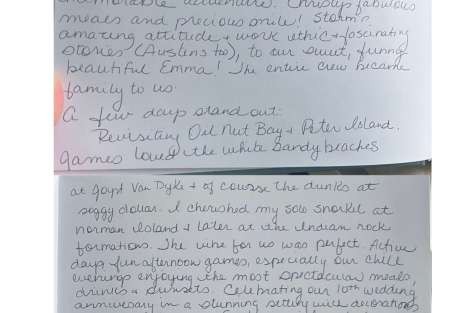 memorable adventure. Christy's fabulous
meals and precious smile! Storm's
amazing attitude + work ethic + fascinating
stories (Austens too), to our sweet, funny
beautiful Emma! The entire crew became
family to us.
A few days stand out:
Revisiting Oil Nut Bay + Peter Island.
James loved the white sandy beaches
at Jost Van Dyke + of course the drinks at
soggy dollar. I cherished my solo snorkel at
norman island + later at the Indian rock
formations. The vibe for us was perfect. Active
days, fun afternoon games, especially our chill
evenings enjoying the most spectacular meals,
drinks + sunsets. Celebrating our 10th wedding
anniversary in a stunning setting with decorations